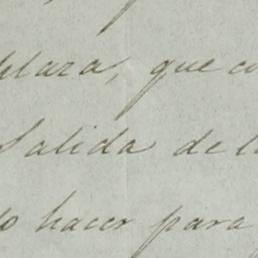 plaza, que co
Salida de l
lo hacer para